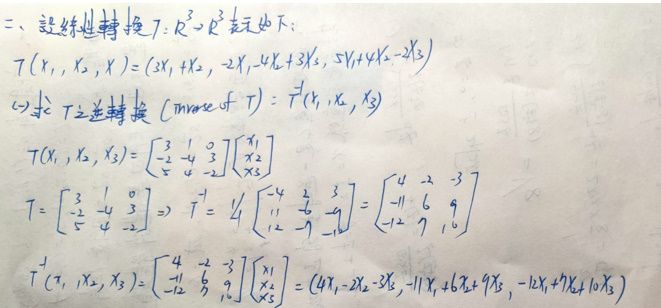 二、設線性轉換 T: R³→R³ 表示如下:
T(x₁, x₂, x) = (3x₁+x₂, -2x₁-4x₂+3x₃, 5x₁+4x₂-2x₃)
(一) 求 T 之逆轉換 (Inverse of T) = T⁻¹(x₁, x₂, x₃)
T(x₁, x₂, x₃) = [3 1 0; -2 -4 3; 5 4 -2] [x1; x2; x3]
T = [3 1 0; -2 -4 3; 5 4 -2] ⇒ T⁻¹ = [-4 2 3; 11 -6 -9; 12 -7] = [4 -2 -3; -11 6 9; -12 7 10]
T⁻¹(x₁, x₂, x₃) = [4 -2 -3; -11 6 9; -12 7 10] [x1; x2; x3] = (4x₁-2x₂-3x₃, -11x₁+6x₂+9x₃, -12x₁+7x₂+10x₃)